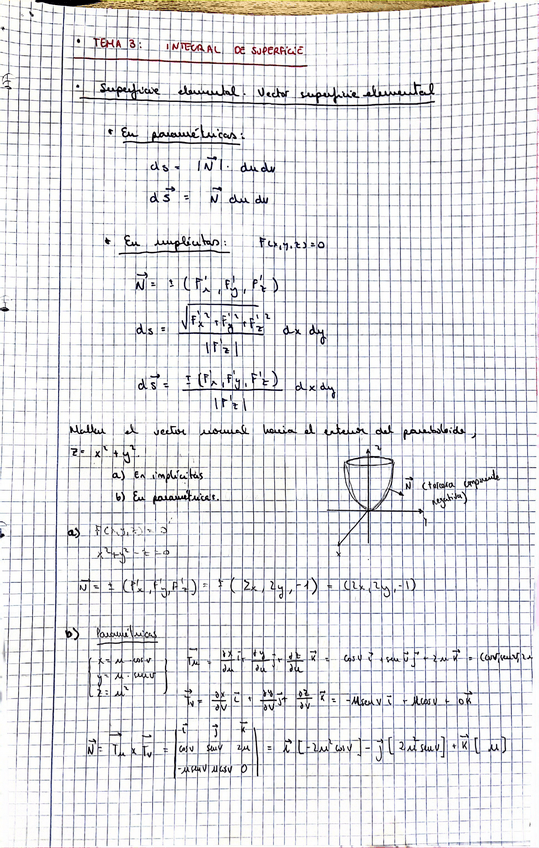 • TEMA 3: INTEGRAL DE SUPERFICIE
• Superficie elemental. Vector superficie elemental
* En paramétricas:
ds = |N⃗| · du dv
dS⃗ = N⃗ du dv
* En implícitas: F(x,y,z)=0
N⃗ = ± (F'x, F'y, F'z)
ds = √(F'x² + F'y² + F'z²) / |F'z| dx dy
dS⃗ = ± (F'x, F'y, F'z) / |F'z| dx dy
Hallar el vector normal hacia el exterior del paraboloide,
z = x² + y².
a) En implícitas
b) En paramétricas.
z
N⃗ (tercera componente negativa)
y
x
a) F(x,y,z) = 0
x² + y² - z = 0
N⃗ = ± (F'x, F'y, F'z) = ± (2x, 2y, -1) = (2x, 2y, -1)
b) Paramétricas
x = u · cos v
y = u · sen v
z = u²
T⃗u = ∂x/∂u i⃗ + ∂y/∂u j⃗ + ∂z/∂u k⃗ = cos v i⃗ + sen v j⃗ + 2u k⃗ = (cos v, sen v, 2u
T⃗v = ∂x/∂v i⃗ + ∂y/∂v j⃗ + ∂z/∂v k⃗ = -u sen v i⃗ + u cos v + 0k⃗
N⃗ = T⃗u × T⃗v = | i⃗ j⃗ k⃗ | = i⃗ [-2u² cos v] - j⃗ [2u² sen v] + k⃗ [u]
cos v sen v 2u
-u sen v u cos v 0